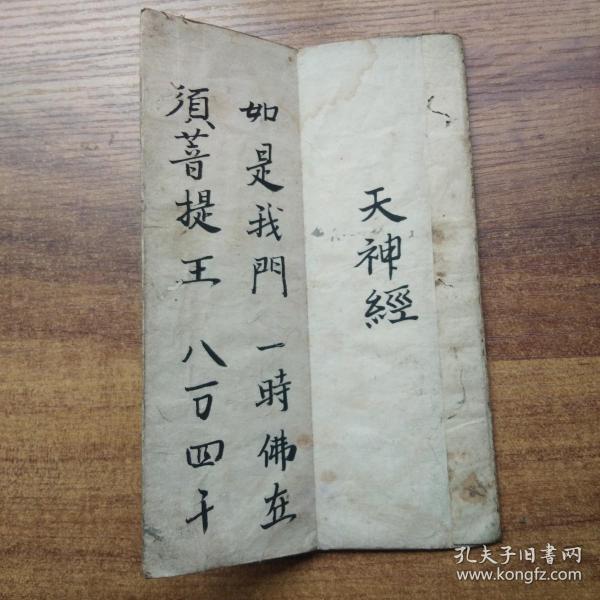 天神經
如是我門 一時佛在
須菩提王 八百四千
孔夫子旧书网
www.kongfz.com